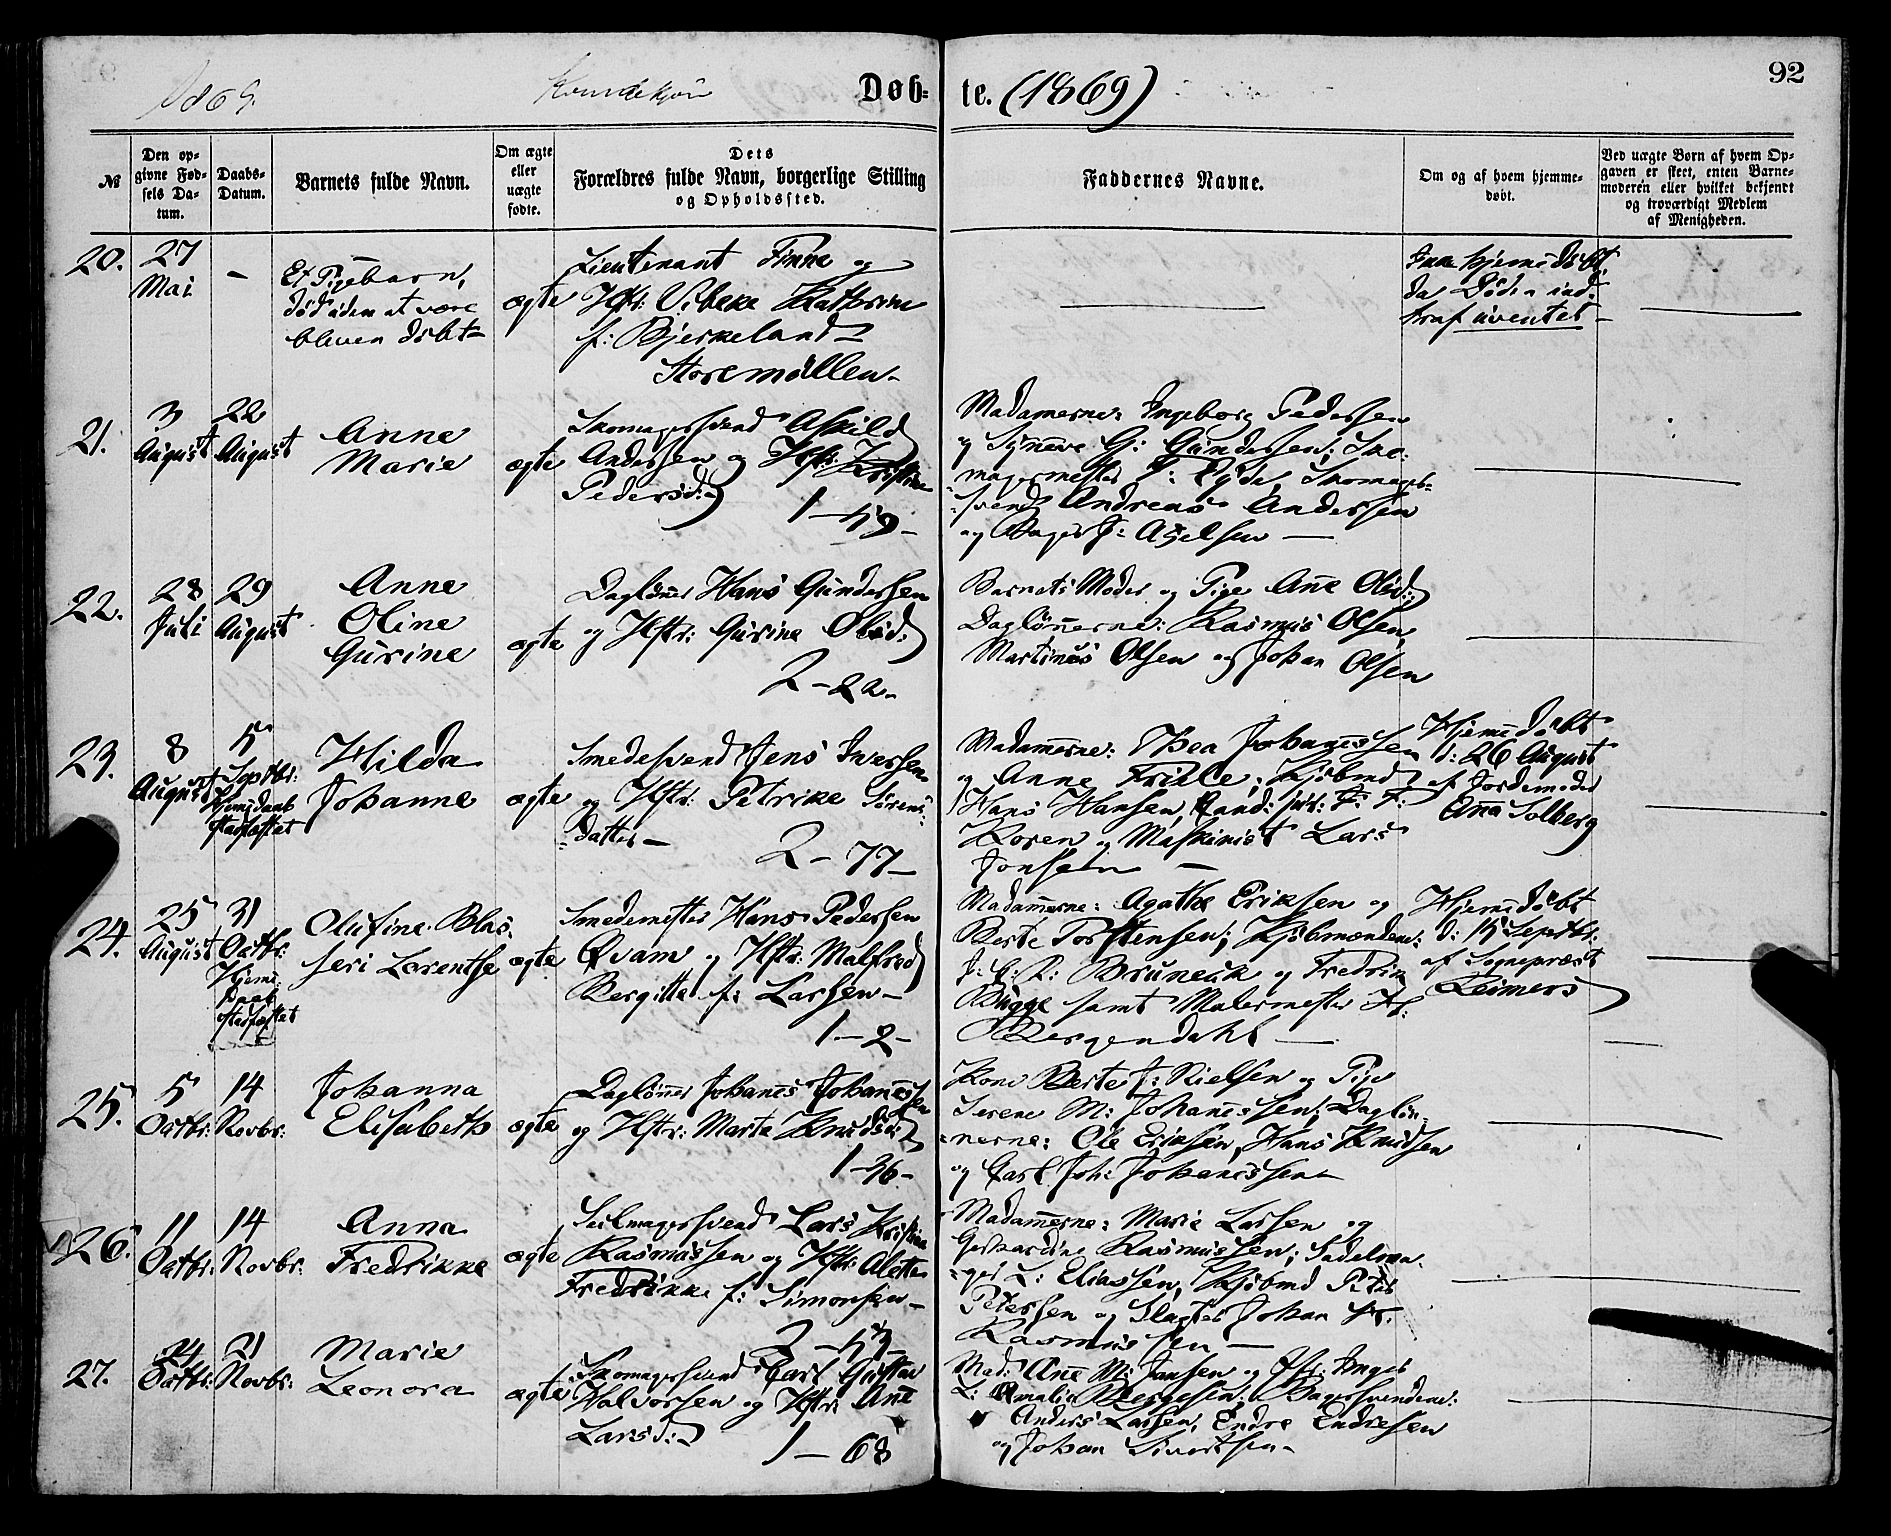 1869.
Kvindekjøn
Døb-
te. (1869)
92
№
Den op-
givne Fød-
sels Da-
tum.
Daabs-
Datum.
Barnets fulde Navn.
Om ægte
eller
uægte
fødte.
Dets
Forældres fulde Navn, borgerlige Stilling
og Opholdssted.
Faddernes Navne.
Om og af hvem hjemme-
døbt.
Ved uægte Børn af hvem Op-
gaven er skeet, enten Barne-
moderen eller hvilket bekjendt
og troværdigt Medlem
af Menigheden.
20.
27
Mai
-
Et Pigebarn,
død uden at være
bleven døbt-
ægte
Lieutenant Finne og
Hstr: Vibeke Kathrine
f: Bjerkeland-
Storemøllen-
hjem̄edøbt,
da Døden ind-
traf uventet-
21.
3
August
22
August
Anne
Marie
ægte
Skomagersvend Askild
Andersen og Hstr: Kristine
Pedersd:
1-59-
Madamerne: Ingeborg Pedersen
og Synneve G: Gundersen; Sko-
magermester P: Eyde, Skomager-
svend Andreas Andersen
og Bager J: Axelsen —
22.
28
Juli
29
August
Anne
Oline
Gurine
ægte
Dagløn̄er Hans Gundersen
og Hstr: Gurine Olsd:
2-22-
Barnets Moder og Pige Ane Olsd:
Dagløn̄erne: Rasmus Olsen,
Martinus Olsen og Johan Olsen
23.
8
August
5
Septbr:
Hjemedaab
stadfæstet
Hilda
Johanne
ægte
Smedesvend Jens Iversen
og Hstr: Petrike Sørens-
datter-
2-77-
Madam̄erne: Thea Johan̄essen
og Anne Friele; Kjøbmd
Hans Hansen, Cand: jur: F: F:
Koren og Maskinist Lars
Jonsen —
Hjem̄edøbt
d: 26 August
af Jordemoder
Ana Solberg
24.
25
August
31
Octbr:
Hjeme-
daab
stadfæstet
Olufine Blas-
seri Lorentse
ægte
Smedemester Hans Pedersen
Qvam og Hstr: Malfred
Bergitte f: Larsen-
1-2-
Madam̄erne: Agathe Eriksen og
Berte Torstensen; Kjøbmændene:
J: C: P: Brunchuk og Fredrik
Bügge samt Malermester H:
Bergendahl —
Hjem̄edøbt
d: 15 Septbr:
af Sognepræst
Reimers
25.
5
Octbr:
14
Novbr:
Johanna
Elisabeth
ægte
Dagløn̄er Johanes Johan̄essen
og Hstr: Marta Knudsd:
1-36-
Kone Berte J: Nielsen og Pige
Serene M: Johan̄essen; Dagløn-
nerne: Ole Eriksen, Hans Knudsen
og Carl Joh: Johanessen
26.
11
Octbr:
14
Novbr:
Anna
Fredrikke
ægte
Seilmagersvend Lars Kristian
Rasmussen og Hstr: Alette
Fredrikke f: Simonsen-
2-53-
Madam̄erne: Marie Larsen og
Gerhardine Rasmussen; Sadelma-
ger L: Eliassen, Kjøbmd Peter
Petersen og Slagter Johan Fr.
Rasmussen —
27.
24
Octbr:
21
Novbr:
Marie
Leonora
ægte
Skomagersvend Carl Gustav
Halvorsen og Hstr: Ane
Larsd:
1-68
Mad: Ane M: Jansen og Hstr: Inger
L: Amalie Børgesen; Bagersvendene:
Anders Larsen, Endre Endresen
og Johan Sivertsen-